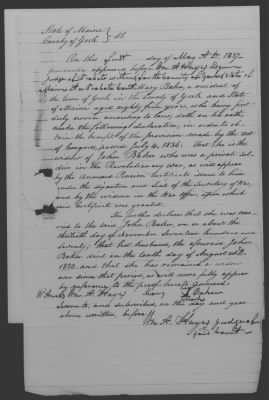 State of Maine
County of York } SS
On this first day of May A.D. 1837
personally appeared before Wm A. Hayes Esquire
Judge of Probate within & for the County of York & State of
Maine at a Probate Court Mary Baker, a resident of
the town of York in the County of York and State
of Maine aged eighty five years, who being first
duly sworn according to law, doth on her oath,
make the following declaration, in order to ob-
tain the benefit of the provision made by the act
of Congress, passed July 4, 1836. That She is the
widow of John Baker who was a private sol-
dier in the Revolutionary war, as will appear
by the Annexed Pension Certificate issued to him
under the signature and Seal of the Secretary of War,
and by the evidence in the War office, upon which
said Certificate was granted.
She further declares that she was mar-
ried to the said John Baker, on or about the
thirtieth day of November Seventeen hundred and
Seventy; that her husband, the aforesaid John
Baker died on the tenth day of August A.D.
1832, and that she has remained a widow
ever since that period, as will more fully appear
by reference to the proof hereto annexed.
Witness Wm A. Hayes Mary Baker
mark
Sworn to, and subscribed, on the day and year
above written, before
Wm A. Hayes Judge of
said Court